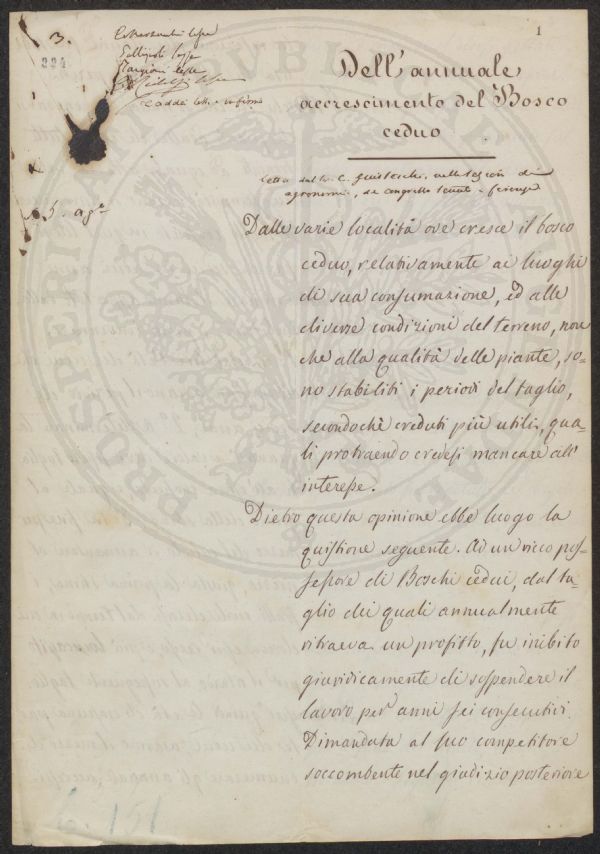 1
3.
224
Dell'annuale
accrescimento del Bosco
ceduo
Dalle varie località ove cresce il bosco
ceduo, relativamente ai luoghi
di sua consumazione, ed alle
diverse condizioni del terreno, non
che alla qualità delle piante, so-
no stabiliti i periodi del taglio,
secondochè creduti più utili, qua-
li protraendo credesi mancare all'
interesse.
Dietro questa opinione ebbe luogo la
quistione seguente. Ad un ricco pos-
sessore di Boschi cedui, dal ta-
glio dei quali annualmente
ritraeva un profitto, fu inibito
giuridicamente di sospendere il
lavoro per anni sei consecutivi.
Dimandata al suo competitore
soccombente nel giudizio posteriore